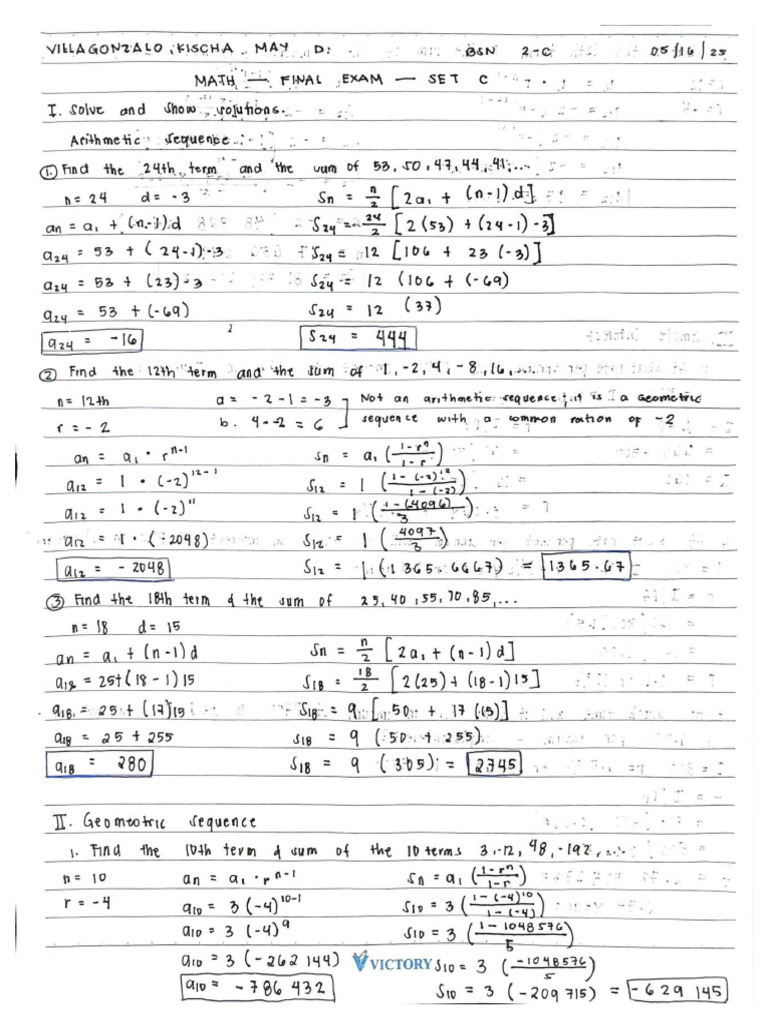 VILLAGONZALO, KISCHA MAY D. BSN 2-C 05/16/25
MATH — FINAL EXAM — SET C
I. Solve and show solutions.
Arithmetic Sequence
1. Find the 24th term and the sum of 53, 50, 47, 44, 41, ...
n = 24 d = -3 Sn = n/2 [2a₁ + (n-1) d]
an = a₁ + (n-1) d S₂₄ = 24/2 [2(53) + (24-1) -3]
a₂₄ = 53 + (24-1) -3 S₂₄ = 12 [106 + 23 (-3)]
a₂₄ = 53 + (23) -3 S₂₄ = 12 (106 + (-69)
a₂₄ = 53 + (-69) S₂₄ = 12 (37)
a₂₄ = -16 S₂₄ = 444
2. Find the 12th term and the sum of 1, -2, 4, -8, 16,
n = 12th a = -2 - 1 = -3 Not an arithmetic sequence; it is a Geometric
r = -2 b. 4 - -2 = 6 sequence with a common ration of -2
an = a₁ · rⁿ⁻¹ Sn = a₁ (1-rⁿ/1-r)
a₁₂ = 1 · (-2)¹²⁻¹ S₁₂ = 1 (1-(-2)¹²/1-(-2))
a₁₂ = 1 · (-2)¹¹ S₁₂ = 1 (1-(4096)/3)
a₁₂ = 1 · (-2048) S₁₂ = 1 (4097/3)
a₁₂ = -2048 S₁₂ = 1 (1365.6667) = 1365.67
3. Find the 18th term & the sum of 25, 40, 55, 70, 85, ...
n = 18 d = 15
an = a₁ + (n-1) d Sn = n/2 [2a₁ + (n-1) d]
a₁₈ = 25+(18-1) 15 S₁₈ = 18/2 [2(25) + (18-1) 15]
a₁₈ = 25 + (17) 15 S₁₈ = 9 [50 + 17 (15)]
a₁₈ = 25 + 255 S₁₈ = 9 (50 + 255)
a₁₈ = 280 S₁₈ = 9 (305) = 2745
II. Geometric Sequence
1. Find the 10th term & sum of the 10 terms 3, -12, 48, -192, ...
n = 10 an = a₁ · rⁿ⁻¹ Sn = a₁ (1-rⁿ/1-r)
r = -4 a₁₀ = 3 (-4)¹⁰⁻¹ S₁₀ = 3 (1-(-4)¹⁰/1-(-4))
a₁₀ = 3 (-4)⁹ S₁₀ = 3 (1-1048576/5)
a₁₀ = 3 (-262 144) VICTORY S₁₀ = 3 (-1048576/5)
a₁₀ = -786 432 S₁₀ = 3 (-209 715) = -629 145